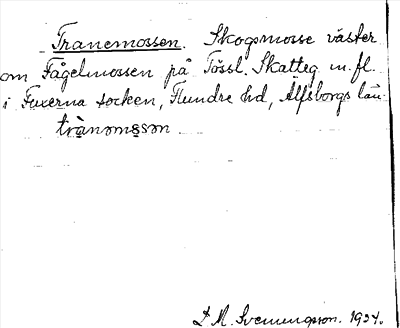 Tranemossen. Skogsmosse väster
om Fågelmossen på Tössl. Skatteg m.fl.
i Fuxerna socken, Flundre hd, Älfsborgs län.
trànɘmɘsɘn
L M. Svenungsson. 1934.